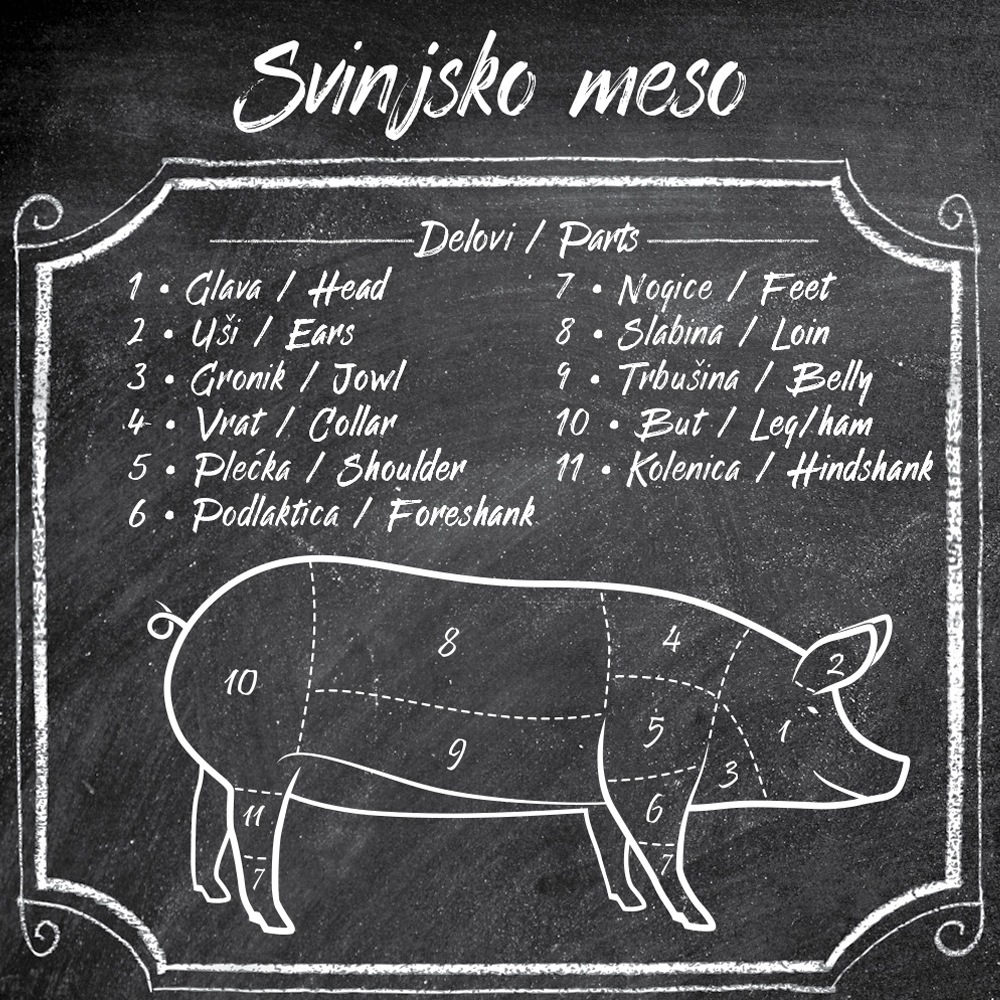 Svinjsko meso
Delovi / Parts
1 • Glava / Head
2 • Uši / Ears
3 • Gronik / Jowl
4 • Vrat / Collar
5 • Plećka / Shoulder
6 • Podlaktica / Foreshank
7 • Nogice / Feet
8 • Slabina / Loin
9 • Trbušina / Belly
10 • But / Leg/ham
11 • Kolenica / Hindshank
8
4
2
10
1
5
9
3
6
11
7
7